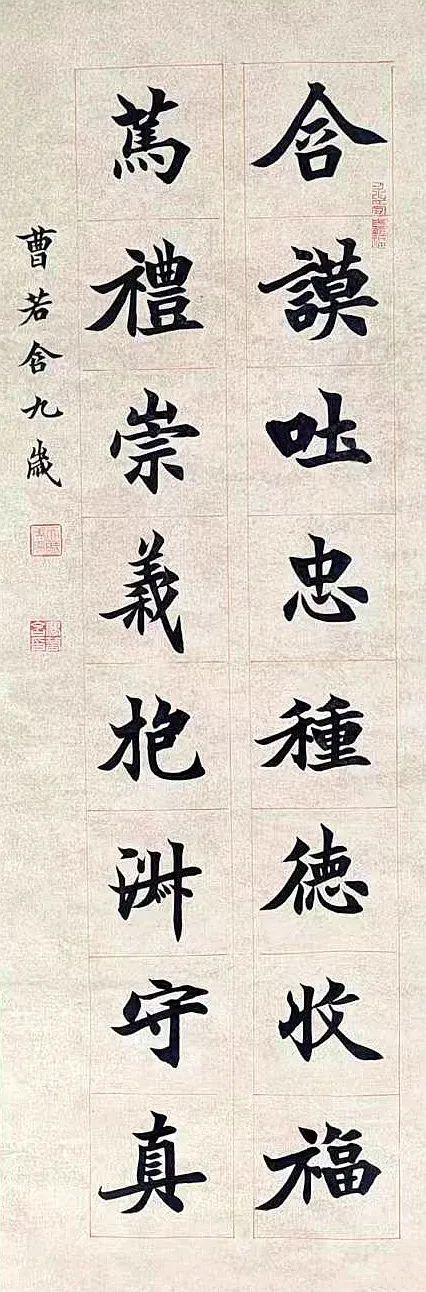 含謨吐忠種德收福
篤禮崇義抱淵守真
曹若含九歲